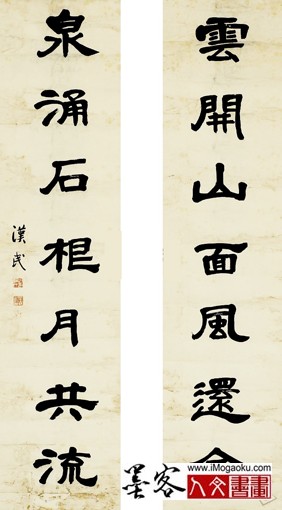 雲開山面風還
泉涌石根月共流
漢民
墨客
www.iMogaoku.com
人文書畫